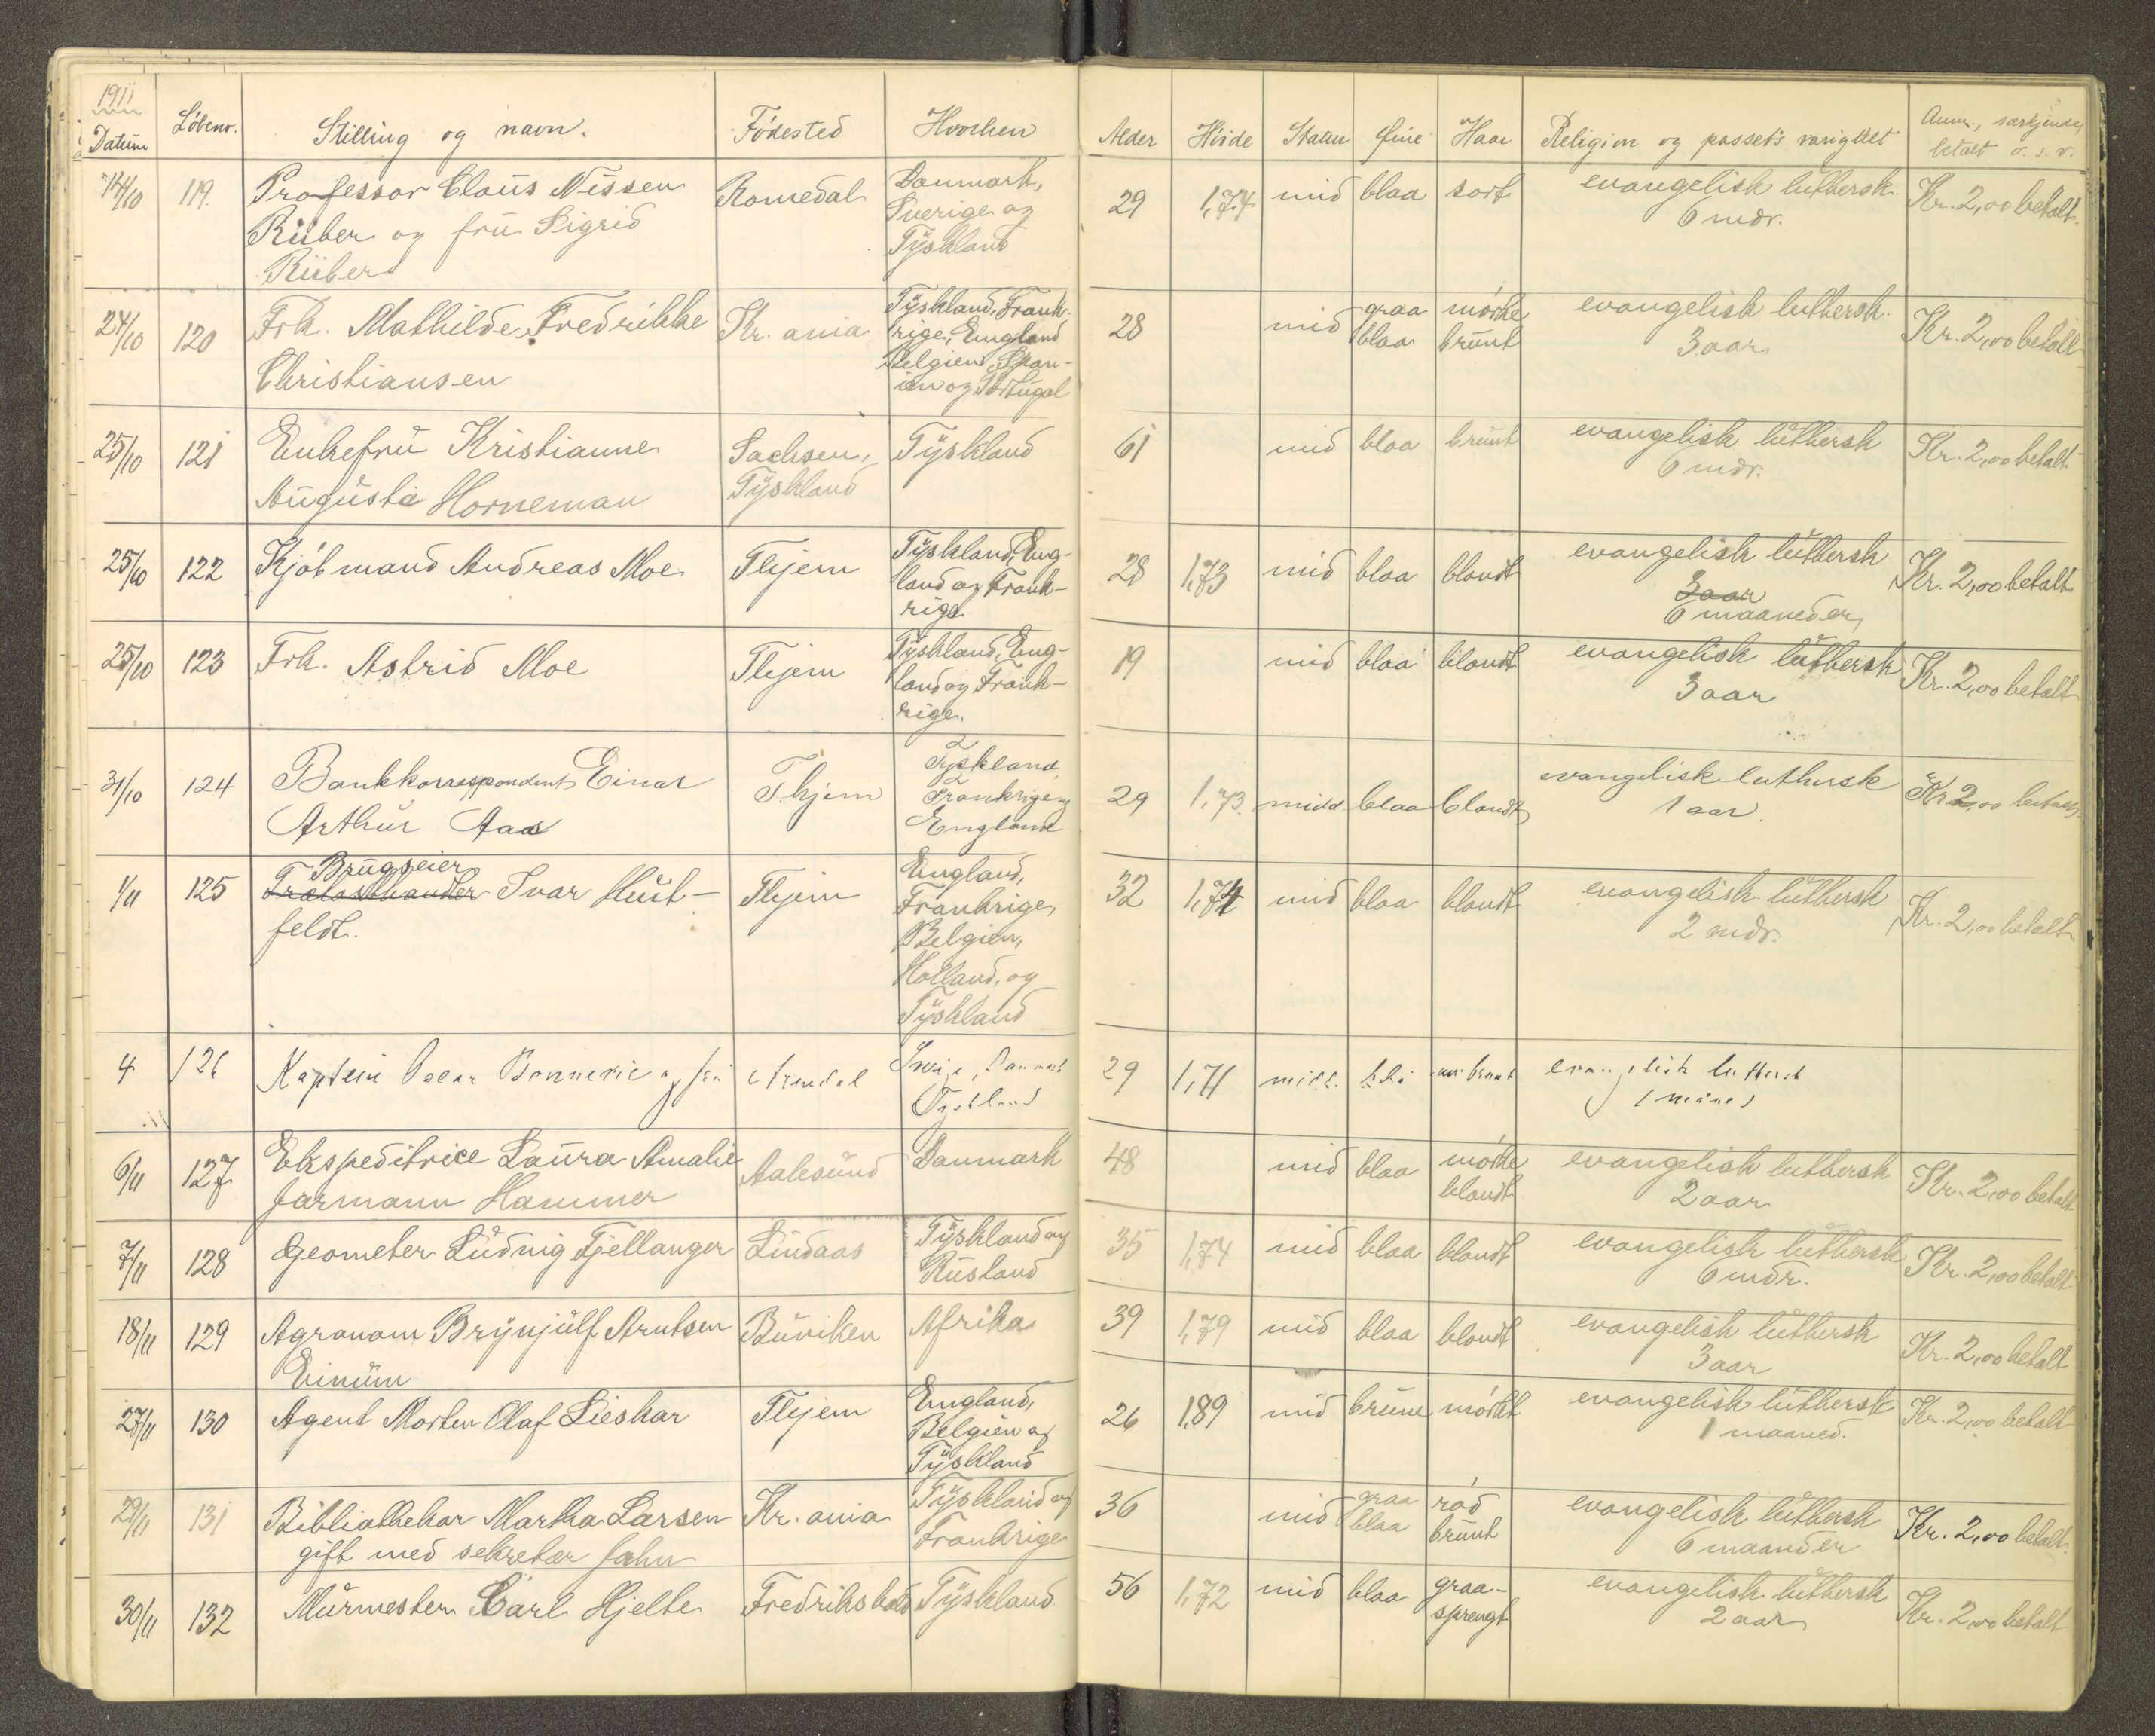 1911
Datum Løbenr. Stilling og navn. Fødested Hvorhen Alder Høide Statur Øine Haar Religion og passets varighet Anm., særkjende, betalt o. s. v.
14/10 119. Professor Claus Nissen Romedal Danmark, 29 1,74 mid blaa sort evangelisk luthersk. Kr. 2,00 betalt.
Riiber og fru Sigrid Sverige og 6 mdr.
Riiber Tyskland
24/10 120 Frk. Mathilde Fredrikke Kr. ania Tyskland, Frank- 28 mid graa mørke evangelisk luthersk. Kr. 2,00 betalt
rige, England blaa brunt 3 aar
Christiansen Belgien, Span-
ien og Portugal
25/10 121 Enkefru Kristianne Sachsen, Tyskland 61 mid blaa brunt evangelisk luthersk Kr. 2,00 betalt
Augusta Horneman Tyskland 6 mdr.
25/10 122 Kjøbmand Andreas Moe Thjem Tyskland, Eng- 28 1,73 mid blaa blondt evangelisk luthersk Kr. 2,00 betalt
land og Frank- 3 aar
rige 6 maaneder,
25/10 123 Frk. Astrid Moe Thjem Tyskland, Eng- 19 mid blaa blondt evangelisk luthersk Kr. 2,00 betalt
land og Frank- 3 aar
rige.
31/10 124 Bankkorrespondent Einar T.hjem Tyskland, 29 1,73 midd blaa blondt evangelisk luthersk Kr 2,00 betalt
Arthur Aas Frankrige og 1 aar.
England
Brugseier England,
1/11 125 Trælasthandler Ivar Huit- Thjem Frankrige, 32 1,74 mid blaa blondt evangelisk luthersk Kr. 2,00 betalt
feldt. Belgien, 2 mdr.
Holland, og
Tyskland
4 126 Kaptein Oscar Bonnevie og fru Arendal Sverige, Danmark 29 1,71 midd. evangelisk luthersk
Tyskland
6/11 127 Ekspeditrice Laura Amalie Aalesund Danmark 48 mid blaa mørke evangelisk luthersk Kr. 2,00 betalt
Jarmann Hammer blondt 2 aar
7/11 128 Geometer Ludvig Fjellanger Lindaas Tyskland og 35 1,74 mid blaa blondt evangelisk luthersk Kr. 2,00 betalt
Rusland 6 mdr.
18/11 129 Agronom Brynjulf Arntsen Buviken Afrika 39 1,79 mid blaa blondt evangelisk luthersk Kr. 2,00 betalt
Einum 3 aar
27/11 130 Agent Morten Olaf Lieskar Thjem England, 26 1,89 mid brune mørkt evangelisk luthersk Kr. 2,00 betalt
Belgien og 1 maaned.
Tyskland
29/11 131 Bibliothekar Martha Larsen Kr. ania Tyskland og 36 mid graa rød evangelisk luthersk Kr. 2,00 betalt.
gift med sekretær Jahn Frankrige blaa brunt 6 maander
30/11 132 Murmester Carl Hjelte Fredrikshald Tyskland 56 1,72 mid blaa graa- evangelisk luthersk Kr. 2,00 betalt
sprengt 2 aar